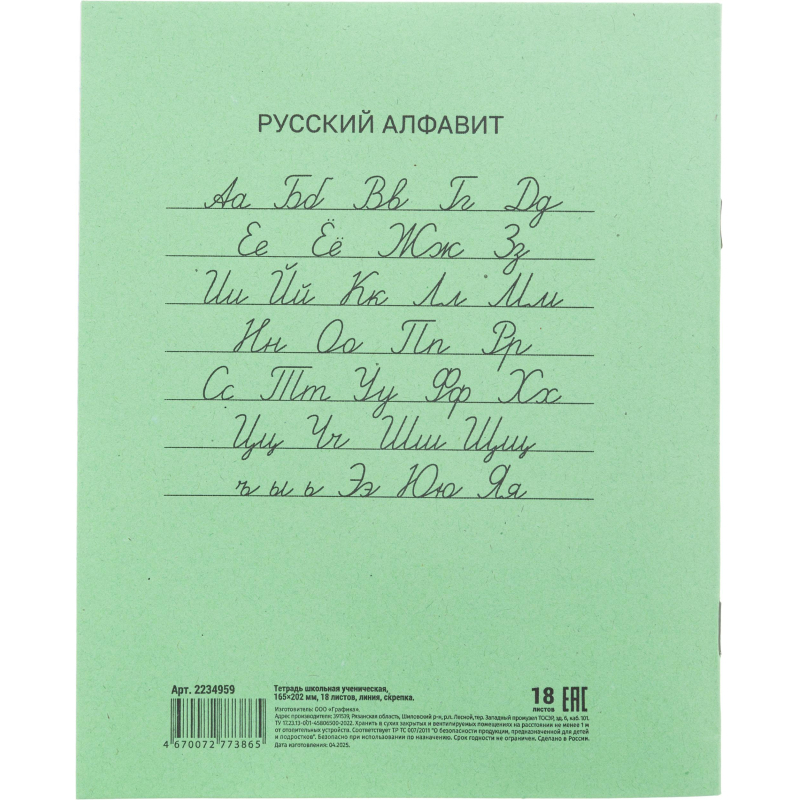 РУССКИЙ АЛФАВИТ
Аа Бб Вв Гг Дд
Ее Ёё Жж Зз
Ии Йй Кк Лл Мм
Нн Оо Пп Рр
Сс Тт Уу Фф Хх
Цц Чч Шш Щщ
ъ ы ь Ээ Юю Яя
Арт. 2234959
4 670072 773865
Тетрадь школьная ученическая,
165×202 мм, 18 листов, линия, скрепка.
Изготовитель: ООО «Графика».
Адрес производителя: 391539, Рязанская область, Шиловский р-н, р.п. Лесной, тер. Западный промузел ТОСЭР, зд. 6, каб. 101.
ТУ 17.23.13-001-45806500-2022. Хранить в сухих закрытых и вентилируемых помещениях на расстоянии не менее 1 м
от отопительных устройств. Соответствует ТР ТС 007/2011 "О безопасности продукции, предназначенной для детей
и подростков". Безопасно при использовании по назначению. Срок годности не ограничен. Сделано в России.
Дата изготовления: 04.2025.
18
листов
ЕАС